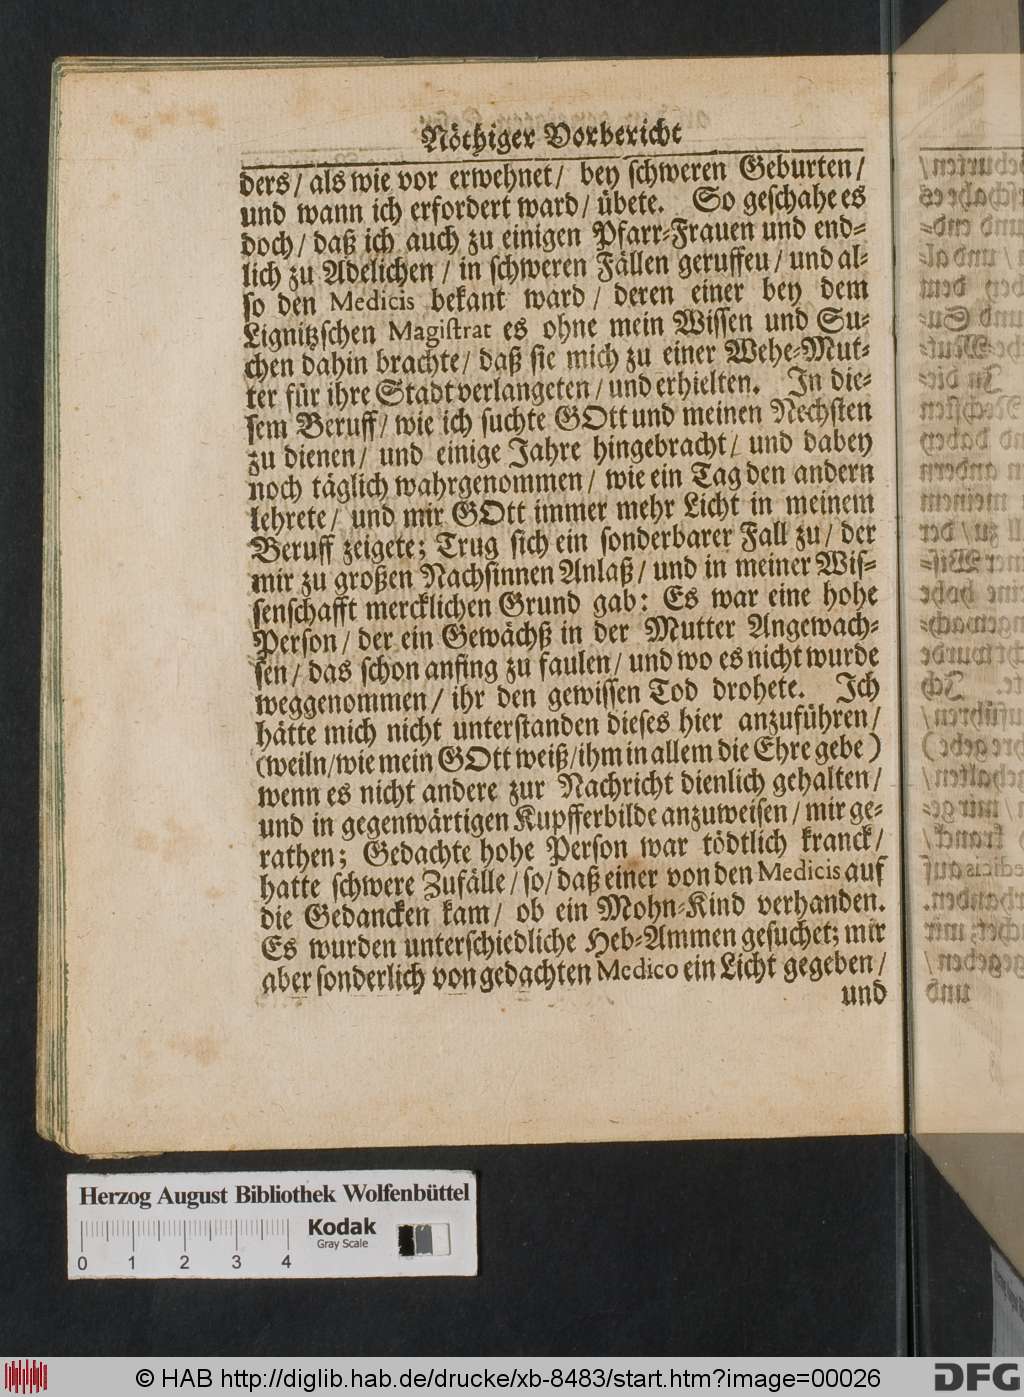 Nöthiger Vorbericht
ders / als wie vor erwehnet / bey schweren Geburten /
und wann ich erfordert ward / übete. So geschahe es
doch / daß ich auch zu einigen Pfarr-Frauen und end-
lich zu Adelichen / in schweren Fällen geruffeu / und al-
so den Medicis bekant ward / deren einer bey dem
Lignitzschen Magistrat es ohne mein Wissen und Su-
chen dahin brachte / daß sie mich zu einer Wehe-Mut-
ter für ihre Stadt verlangeten / und erhielten. In die-
sem Beruff / wie ich suchte GOtt und meinen Nechsten
zu dienen / und einige Jahre hingebracht / und dabey
noch täglich wahrgenommen / wie ein Tag den andern
lehrete / und mir GOtt immer mehr Licht in meinem
Beruff zeigete; Trug sich ein sonderbarer Fall zu / der
mir zu großen Nachsinnen Anlaß / und in meiner Wis-
senschafft mercklichen Grund gab: Es war eine hohe
Person / der ein Gewächß in der Mutter Angewach-
sen / das schon anfing zu faulen / und wo es nicht wurde
weggenommen / ihr den gewissen Tod drohete. Ich
hätte mich nicht unterstanden dieses hier anzuführen /
(weiln / wie mein GOtt weiß / ihm in allem die Ehre gebe)
wenn es nicht andere zur Nachricht dienlich gehalten /
und in gegenwärtigen Kupfferbilde anzuweisen / mir ge-
rathen; Gedachte hohe Person war tödtlich kranck /
hatte schwere Zufälle / so / daß einer von den Medicis auf
die Gedancken kam / ob ein Mohn-Kind verhanden.
Es wurden unterschiedliche Heb-Ammen gesuchet; mir
aber sonderlich von gedachten Medico ein Licht gegeben /
und
Herzog August Bibliothek Wolfenbüttel
Kodak
Gray Scale
0 1 2 3 4
© HAB http://diglib.hab.de/drucke/xb-8483/start.htm?image=00026
DFG